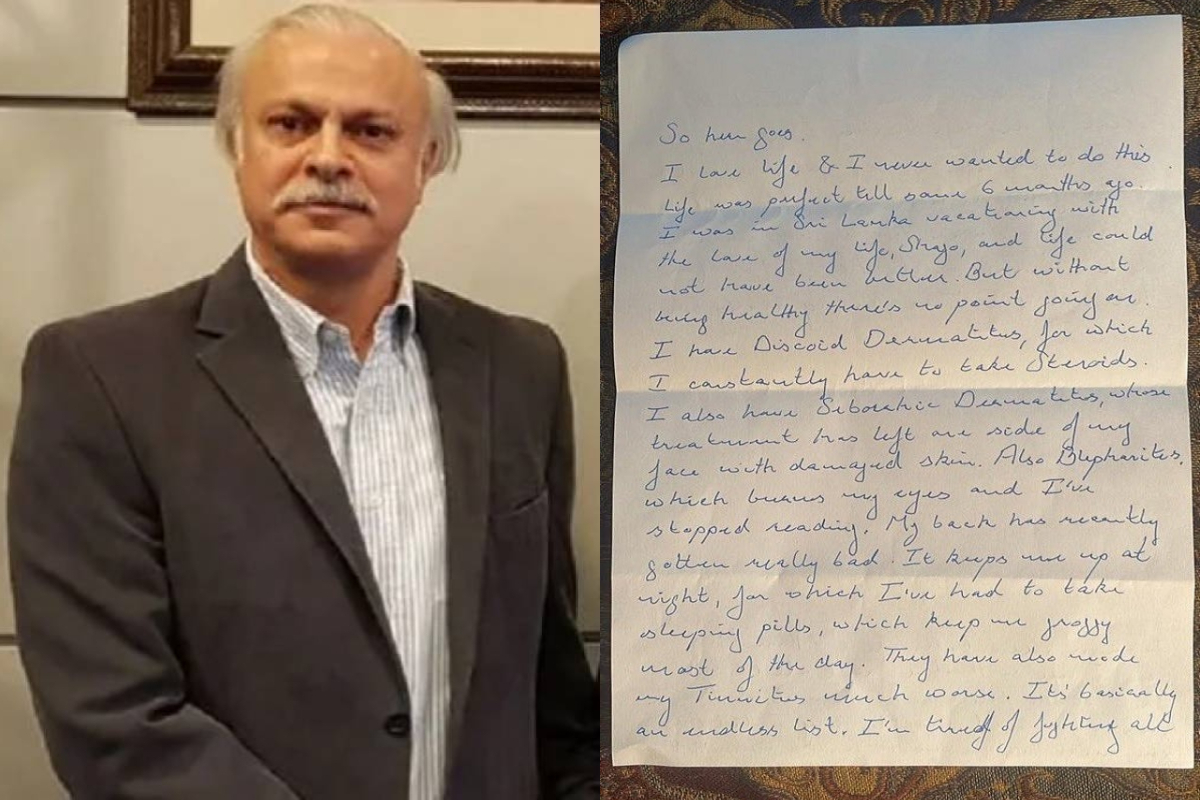 So here goes.
I love life & I never wanted to do this.
Life was perfect till some 6 months ago.
I was in Sri Lanka vacationing with
the love of my life, and life could
not have been better. But without
being healthy there's no point going on.
I have Discoid Dermatitis, for which
I constantly have to take Steroids.
I also have Seborrhic Dermatitis, whose
treatment has left one side of my
face with damaged skin. Also Blepharites,
which burns my eyes and I've
stopped reading. My back has recently
gotten really bad. It keeps me up at
night, for which I've had to take
sleeping pills, which keep me groggy
most of the day. They have also made
my Tinnitus much worse. Its basically
an endless list. I'm tired of fighting all